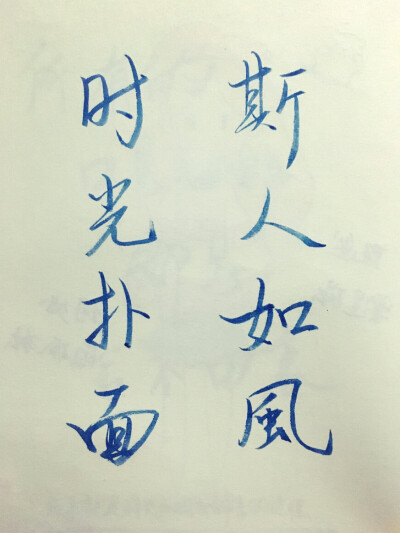 斯人如風
时光扑面